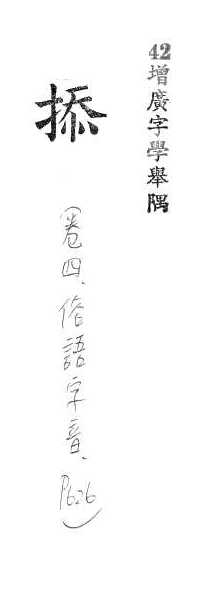 42增廣字學舉隅
掭
(卷四、俗語字音、P626)